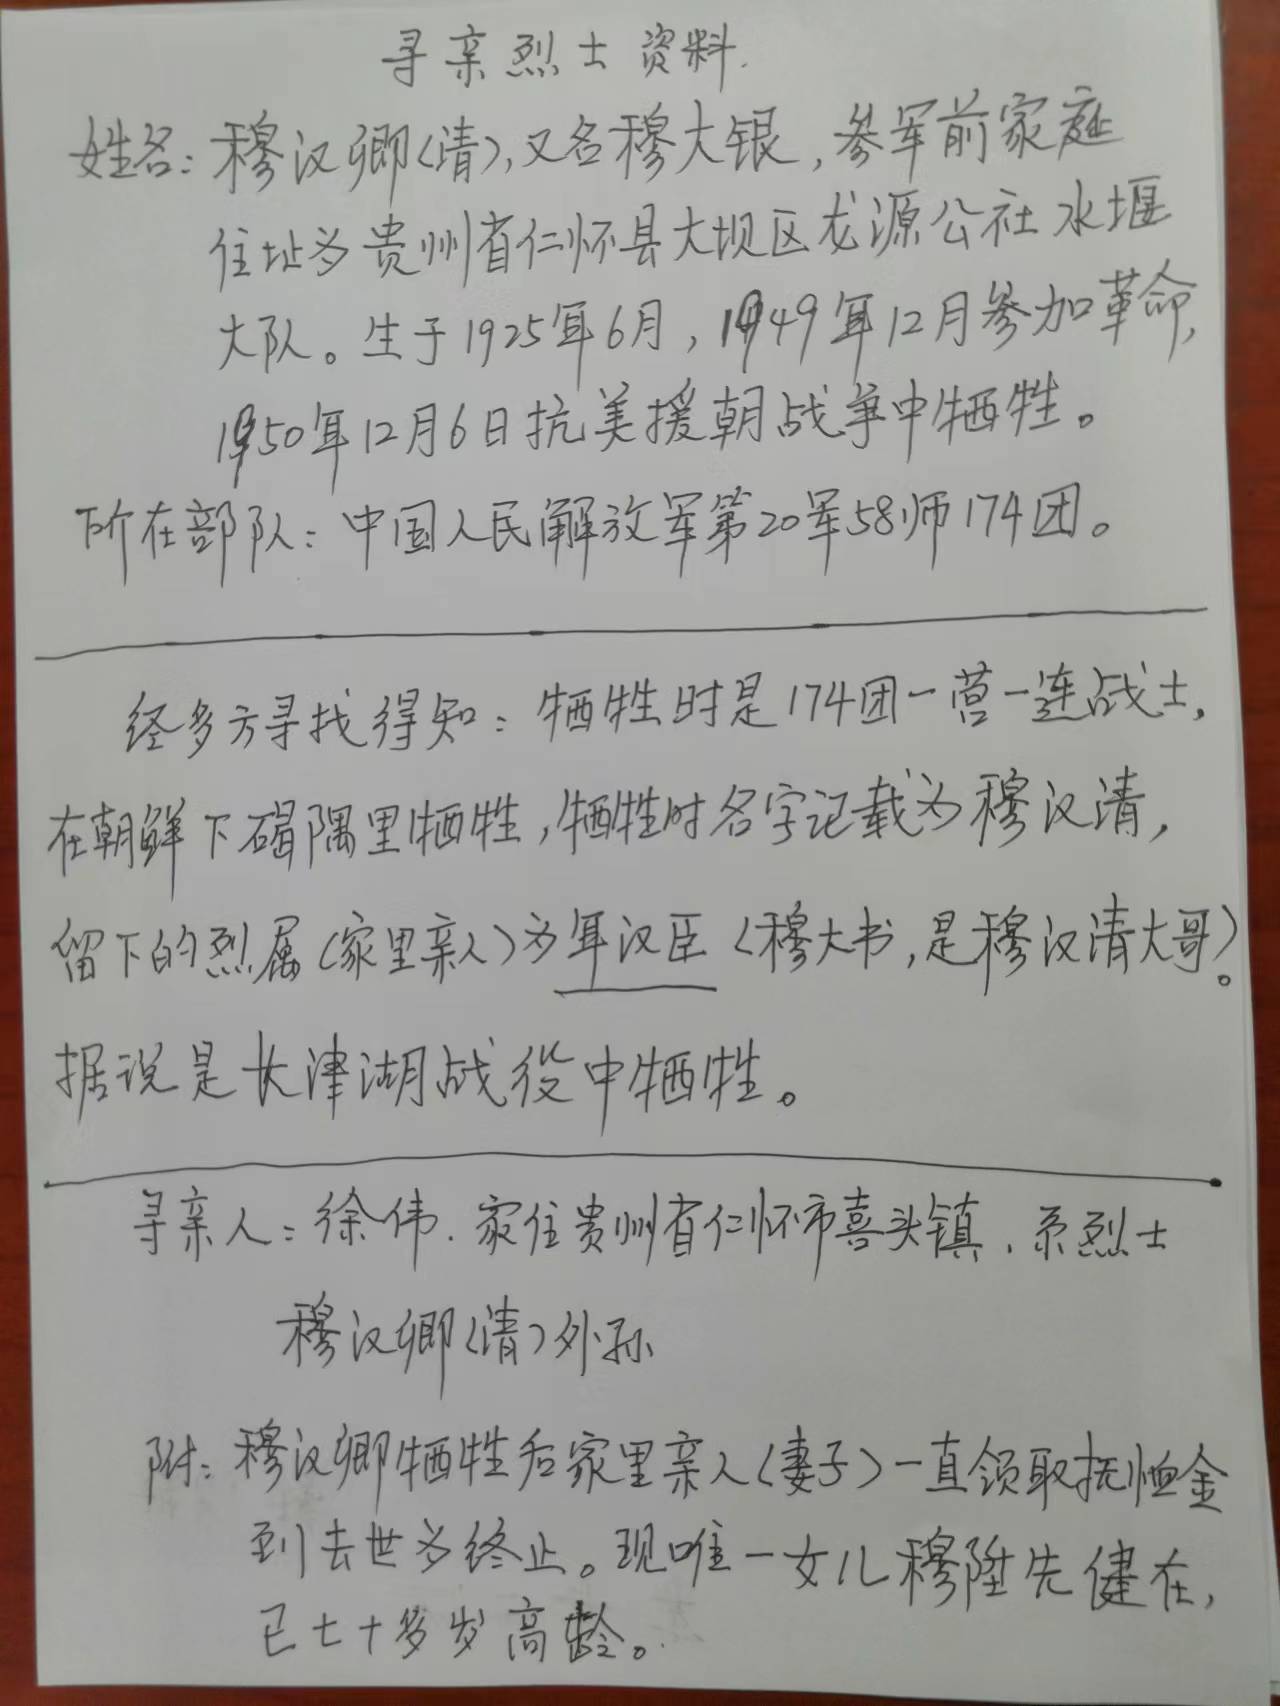 寻亲烈士资料.
姓名：穆汉卿（清），又名穆大银，参军前家庭
住址为贵州省仁怀县大坝区龙源公社水堰
大队。生于1925年6月，1949年12月参加革命，
1950年12月6日抗美援朝战争中牺牲。
所在部队：中国人民解放军第20军58师174团。
经多方寻找得知：牺牲时是174团一营一连战士，
在朝鲜下碣隅里牺牲，牺牲时名字记载为穆汉清，
留下的烈属（家里亲人）为年汉臣（穆大书，是穆汉清大哥）。
据说是长津湖战役中牺牲。
寻亲人：徐伟.家住贵州省仁怀市喜头镇.系烈士
穆汉卿（清）外孙
附：穆汉卿牺牲后家里亲人（妻子）一直领取抚恤金
到去世为终止。现唯一女儿穆陞先健在，
已七十多岁高龄。